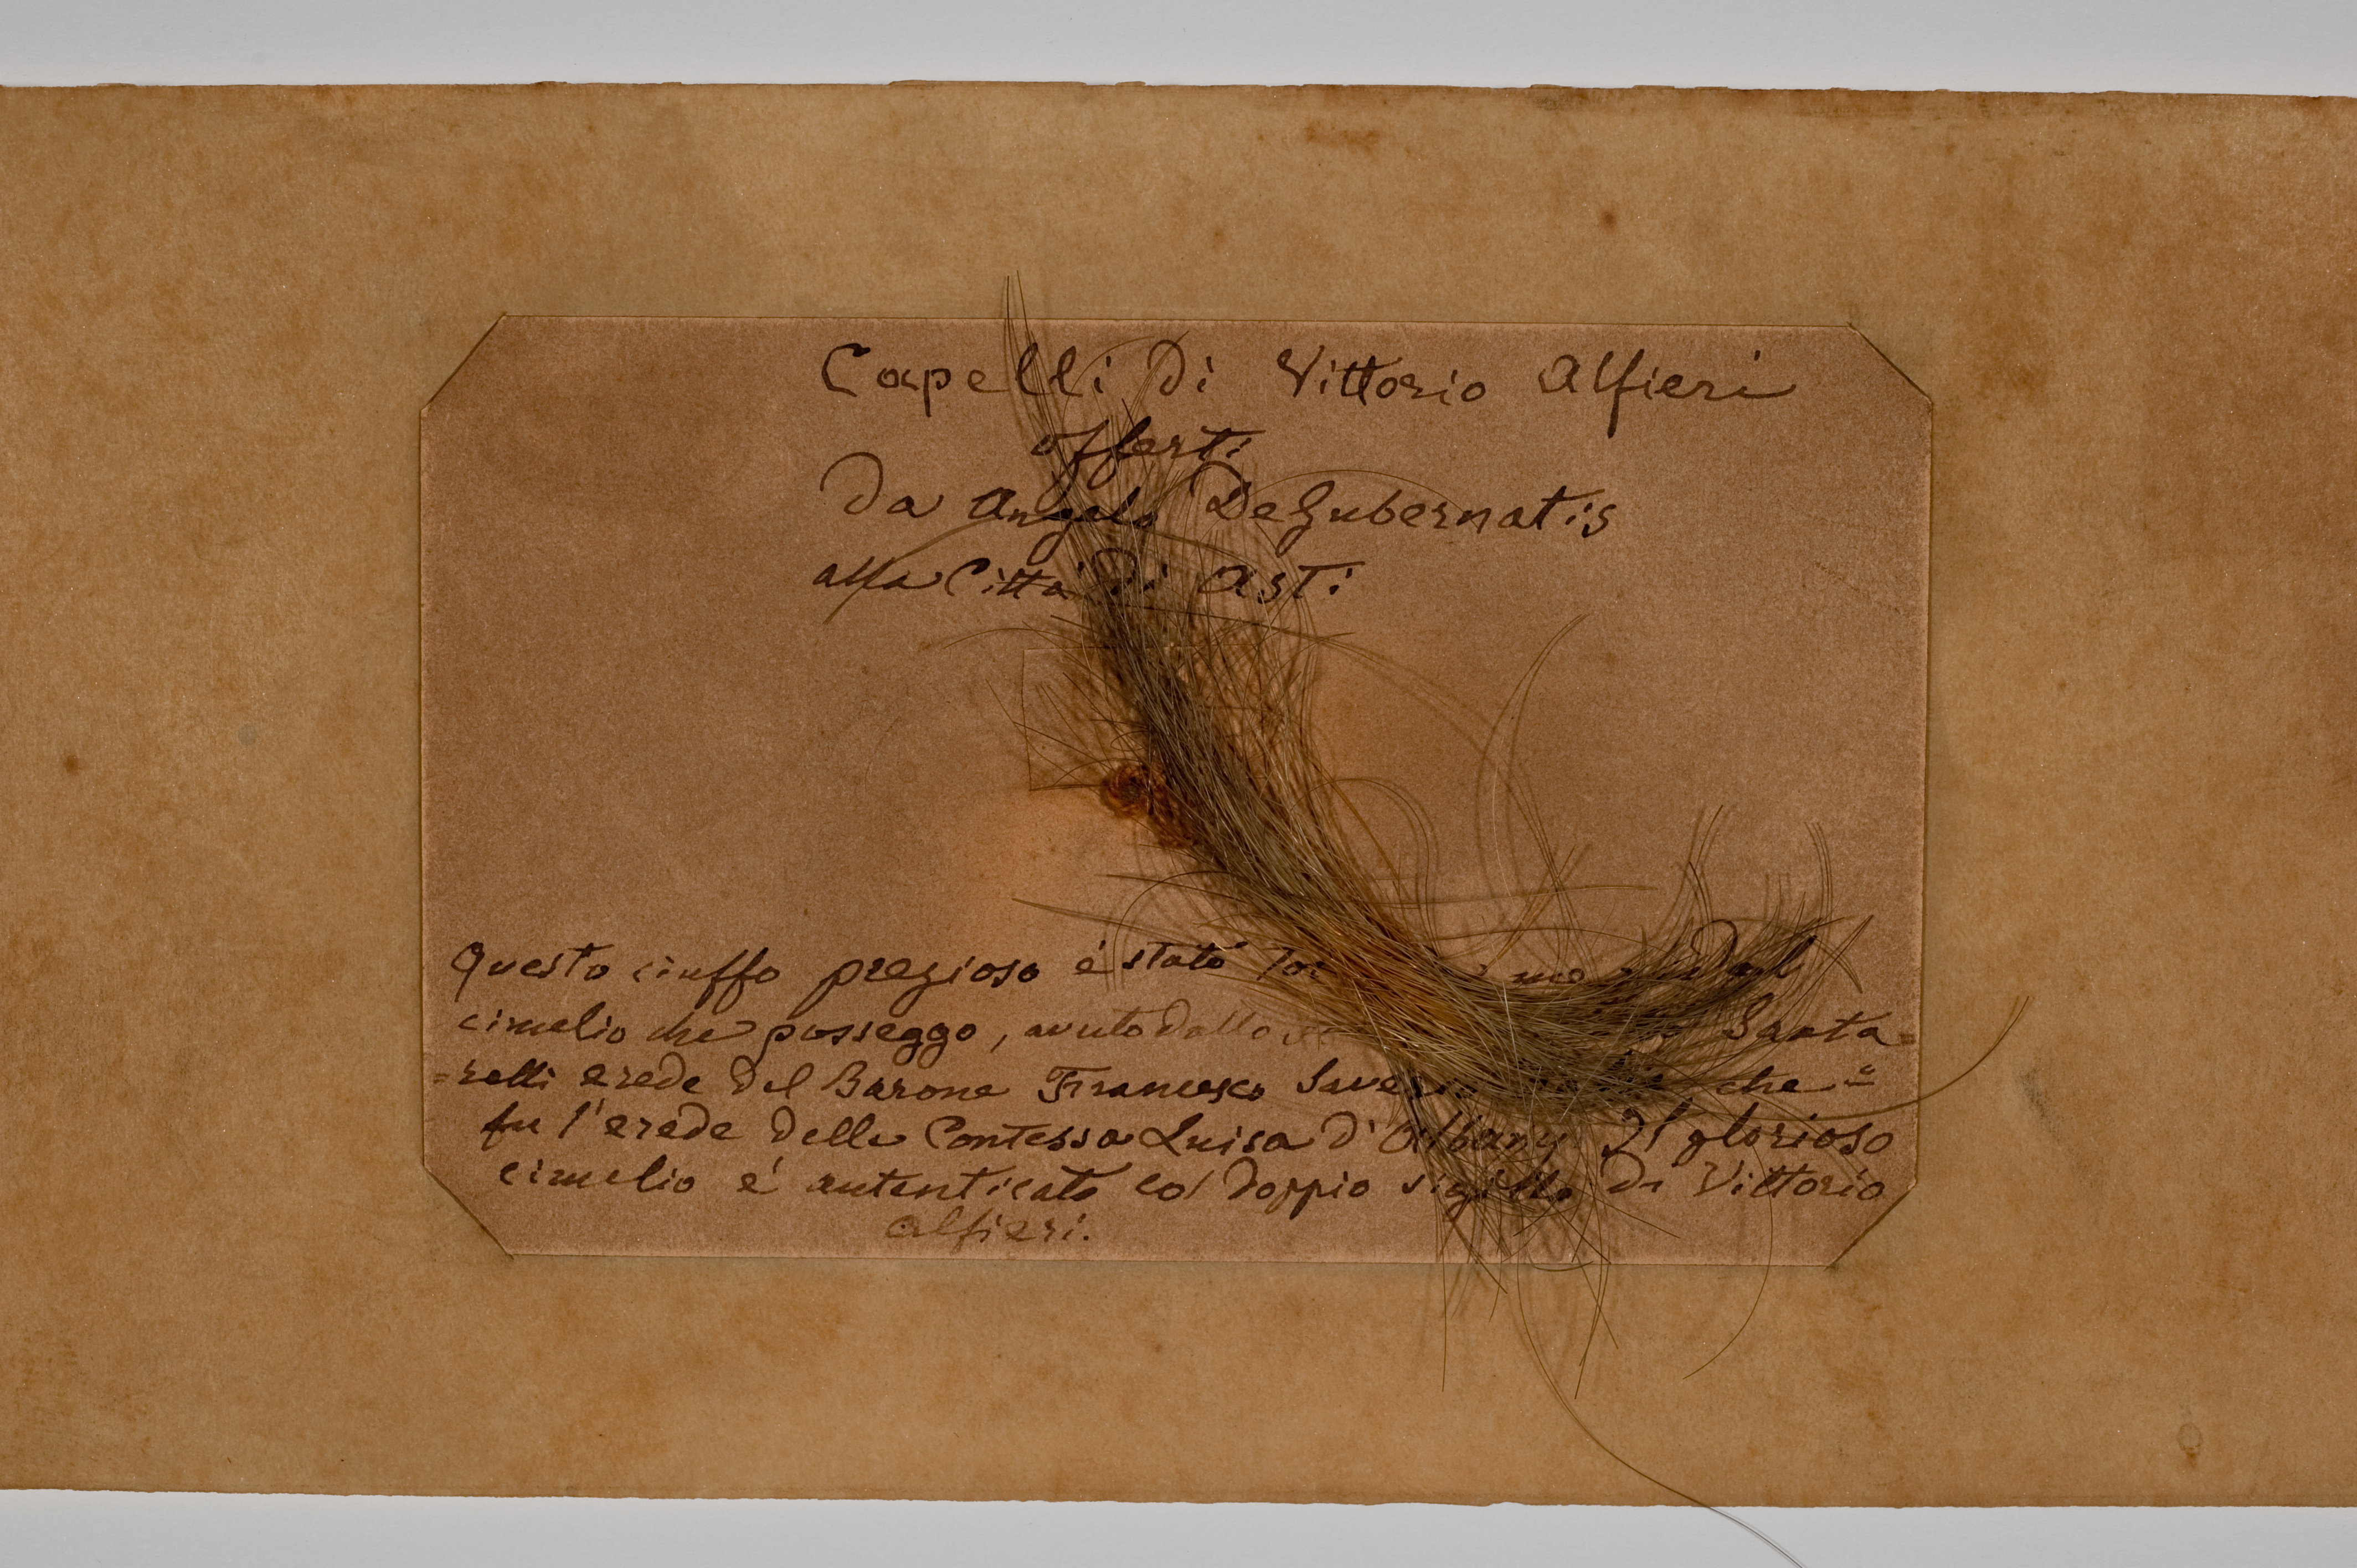 Capelli di Vittorio Alfieri
offerti
da Angelo DeGubernatis
alla Città di Asti
Questo ciuffo prezioso è stato dal
cimelio che posseggo, avuto dallo Santa=
=relli erede del Barone Francesco Saverio che
fu l'erede della Contessa Luisa d'Albany Il glorioso
cimelio è autenticato col doppio sigillo di Vittorio
Alfieri.